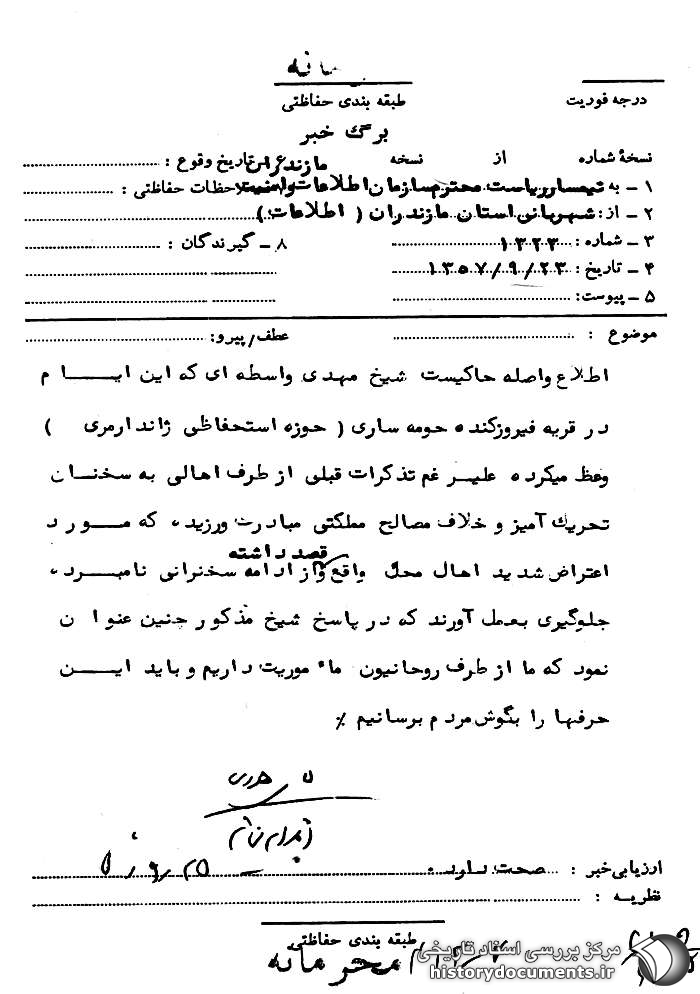 محرمانه
درجه فوریت
طبقه بندی حفاظتی
برگ خبر
نسخهٔ شماره از نسخه تاریخ وقوع :
۱ – به تیمسار ریاست محترم سازمان اطلاعات وامنیت مازندران ملاحظات حفاظتی :
۲ – از : شهربانی استان مازندران ( اطلاعات )
۳ – شماره : ۱۳۲۳ ۸ – گیرندگان :
۴ – تاریخ : ۱۳۵۷/۹/۲۳
۵ – پیوست :
موضوع : عطف/پیرو:
اطلاع واصله حاکیست شیخ مهدی واسطه ای که این ایام
در قریه فیروزکنده حومه ساری ( حوزه استحفاظی ژاندارمری )
وعظ میکرده علیرغم تذکرات قبلی از طرف اهالی به سخنان
تحریک آمیز و خلاف مصالح مملکتی مبادرت ورزیده، که مورد
اعتراض شدید اهال محل واقع و قصد داشته از ادامه سخنرانی نامبرده،
جلوگیری بعمل آورند که در پاسخ شیخ مذکور چنین عنوان
نمود که ما از طرف روحانیون ماموریت داریم و باید این
حرفها را بگوش مردم برسانیم ٪
ارزیابی خبر : صحت دارد .
نظریه :
طبقه بندی حفاظتی
محرمانه
مرکز بررسی اسناد تاریخی
historydocuments.ir